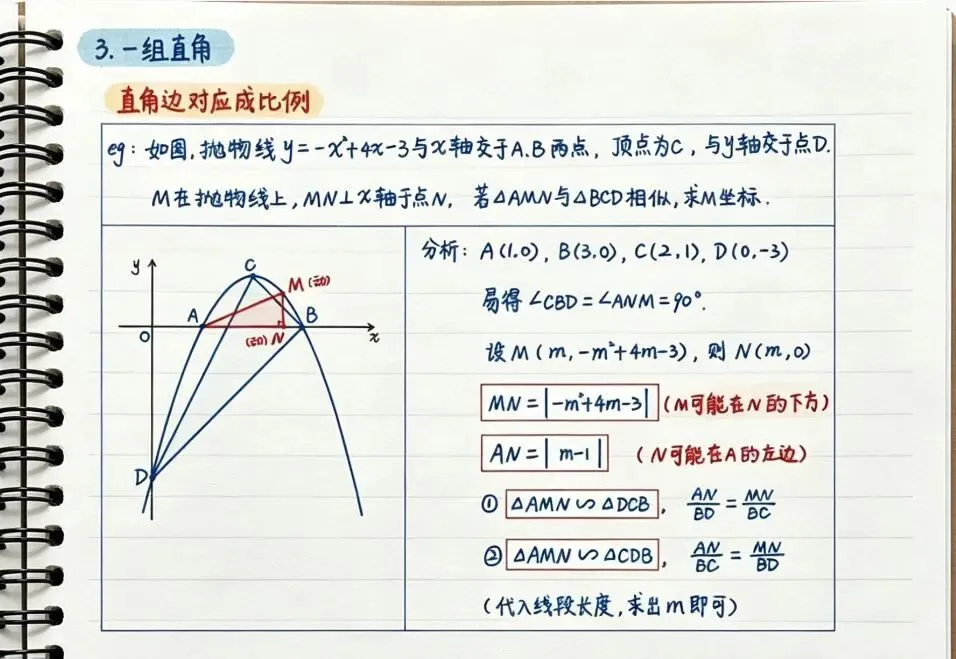 3.一组直角
直角边对应成比例
eg：如图,抛物线y=-x²+4x-3与x轴交于A.B两点，顶点为C，与y轴交于点D.
M在抛物线上,MN⊥x轴于点N，若△AMN与△BCD相似,求M坐标.
分析：A(1,0)，B(3,0)，C(2,1)，D(0,-3)
易得∠CBD=∠ANM=90°.
设M(m,-m²+4m-3)，则N(m,0)
MN=|-m²+4m-3|(M可能在N的下方)
AN=|m-1|（N可能在A的左边）
① △AMN∽△DCB，AN/BD=MN/BC
② △AMN∽△CDB，AN/BC=MN/BD
(代入线段长度,求出m即可)
y
C
M(动)
A
B
O
(动)N
x
D